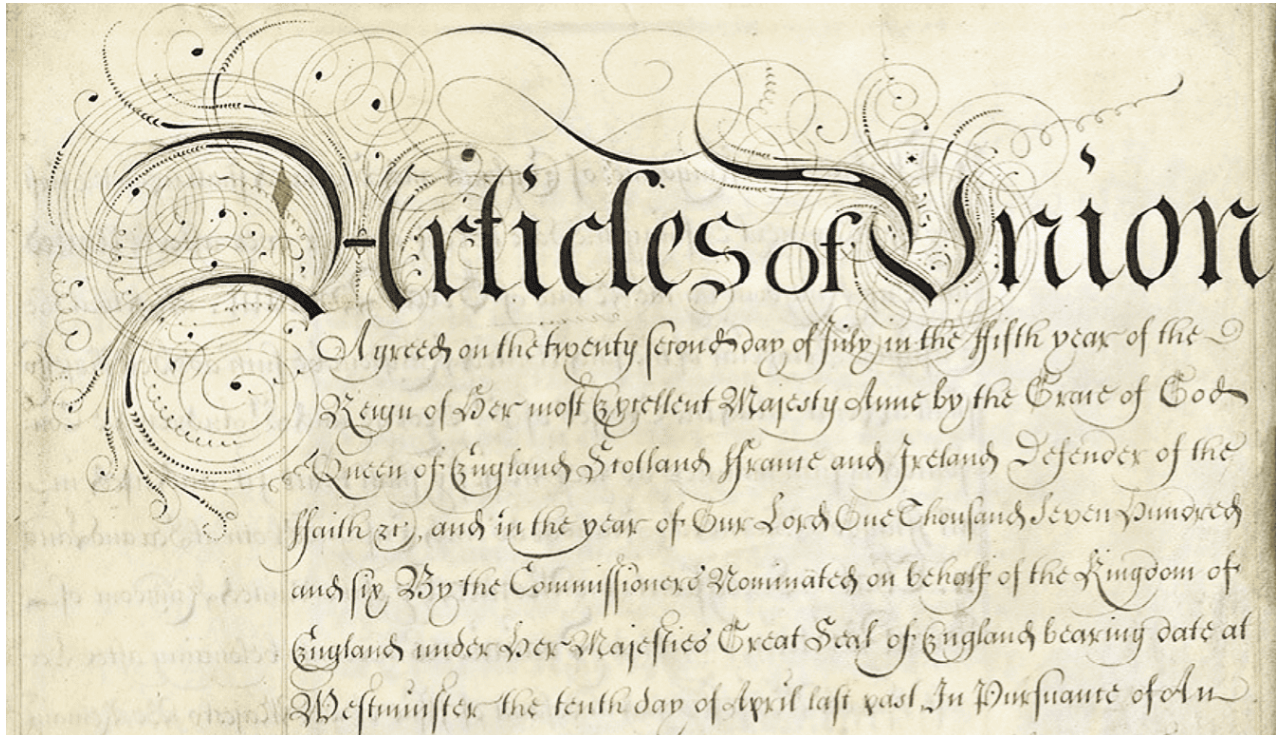 Articles of Union
Agreed on the twenty second day of July in the ffifth year of the
Reign of Her most Excellent Majesty Anne by the Grace of God
Queen of England Scotland ffrance and Ireland Defender of the
ffaith &c, and in the year of Our Lord One Thousand Seven Hundred
and six By the Commissioners Nominated on behalf of the Kingdom of
England under Her Majesties Great Seal of England bearing date at
Westminster the tenth day of April last past In Pursuance of An